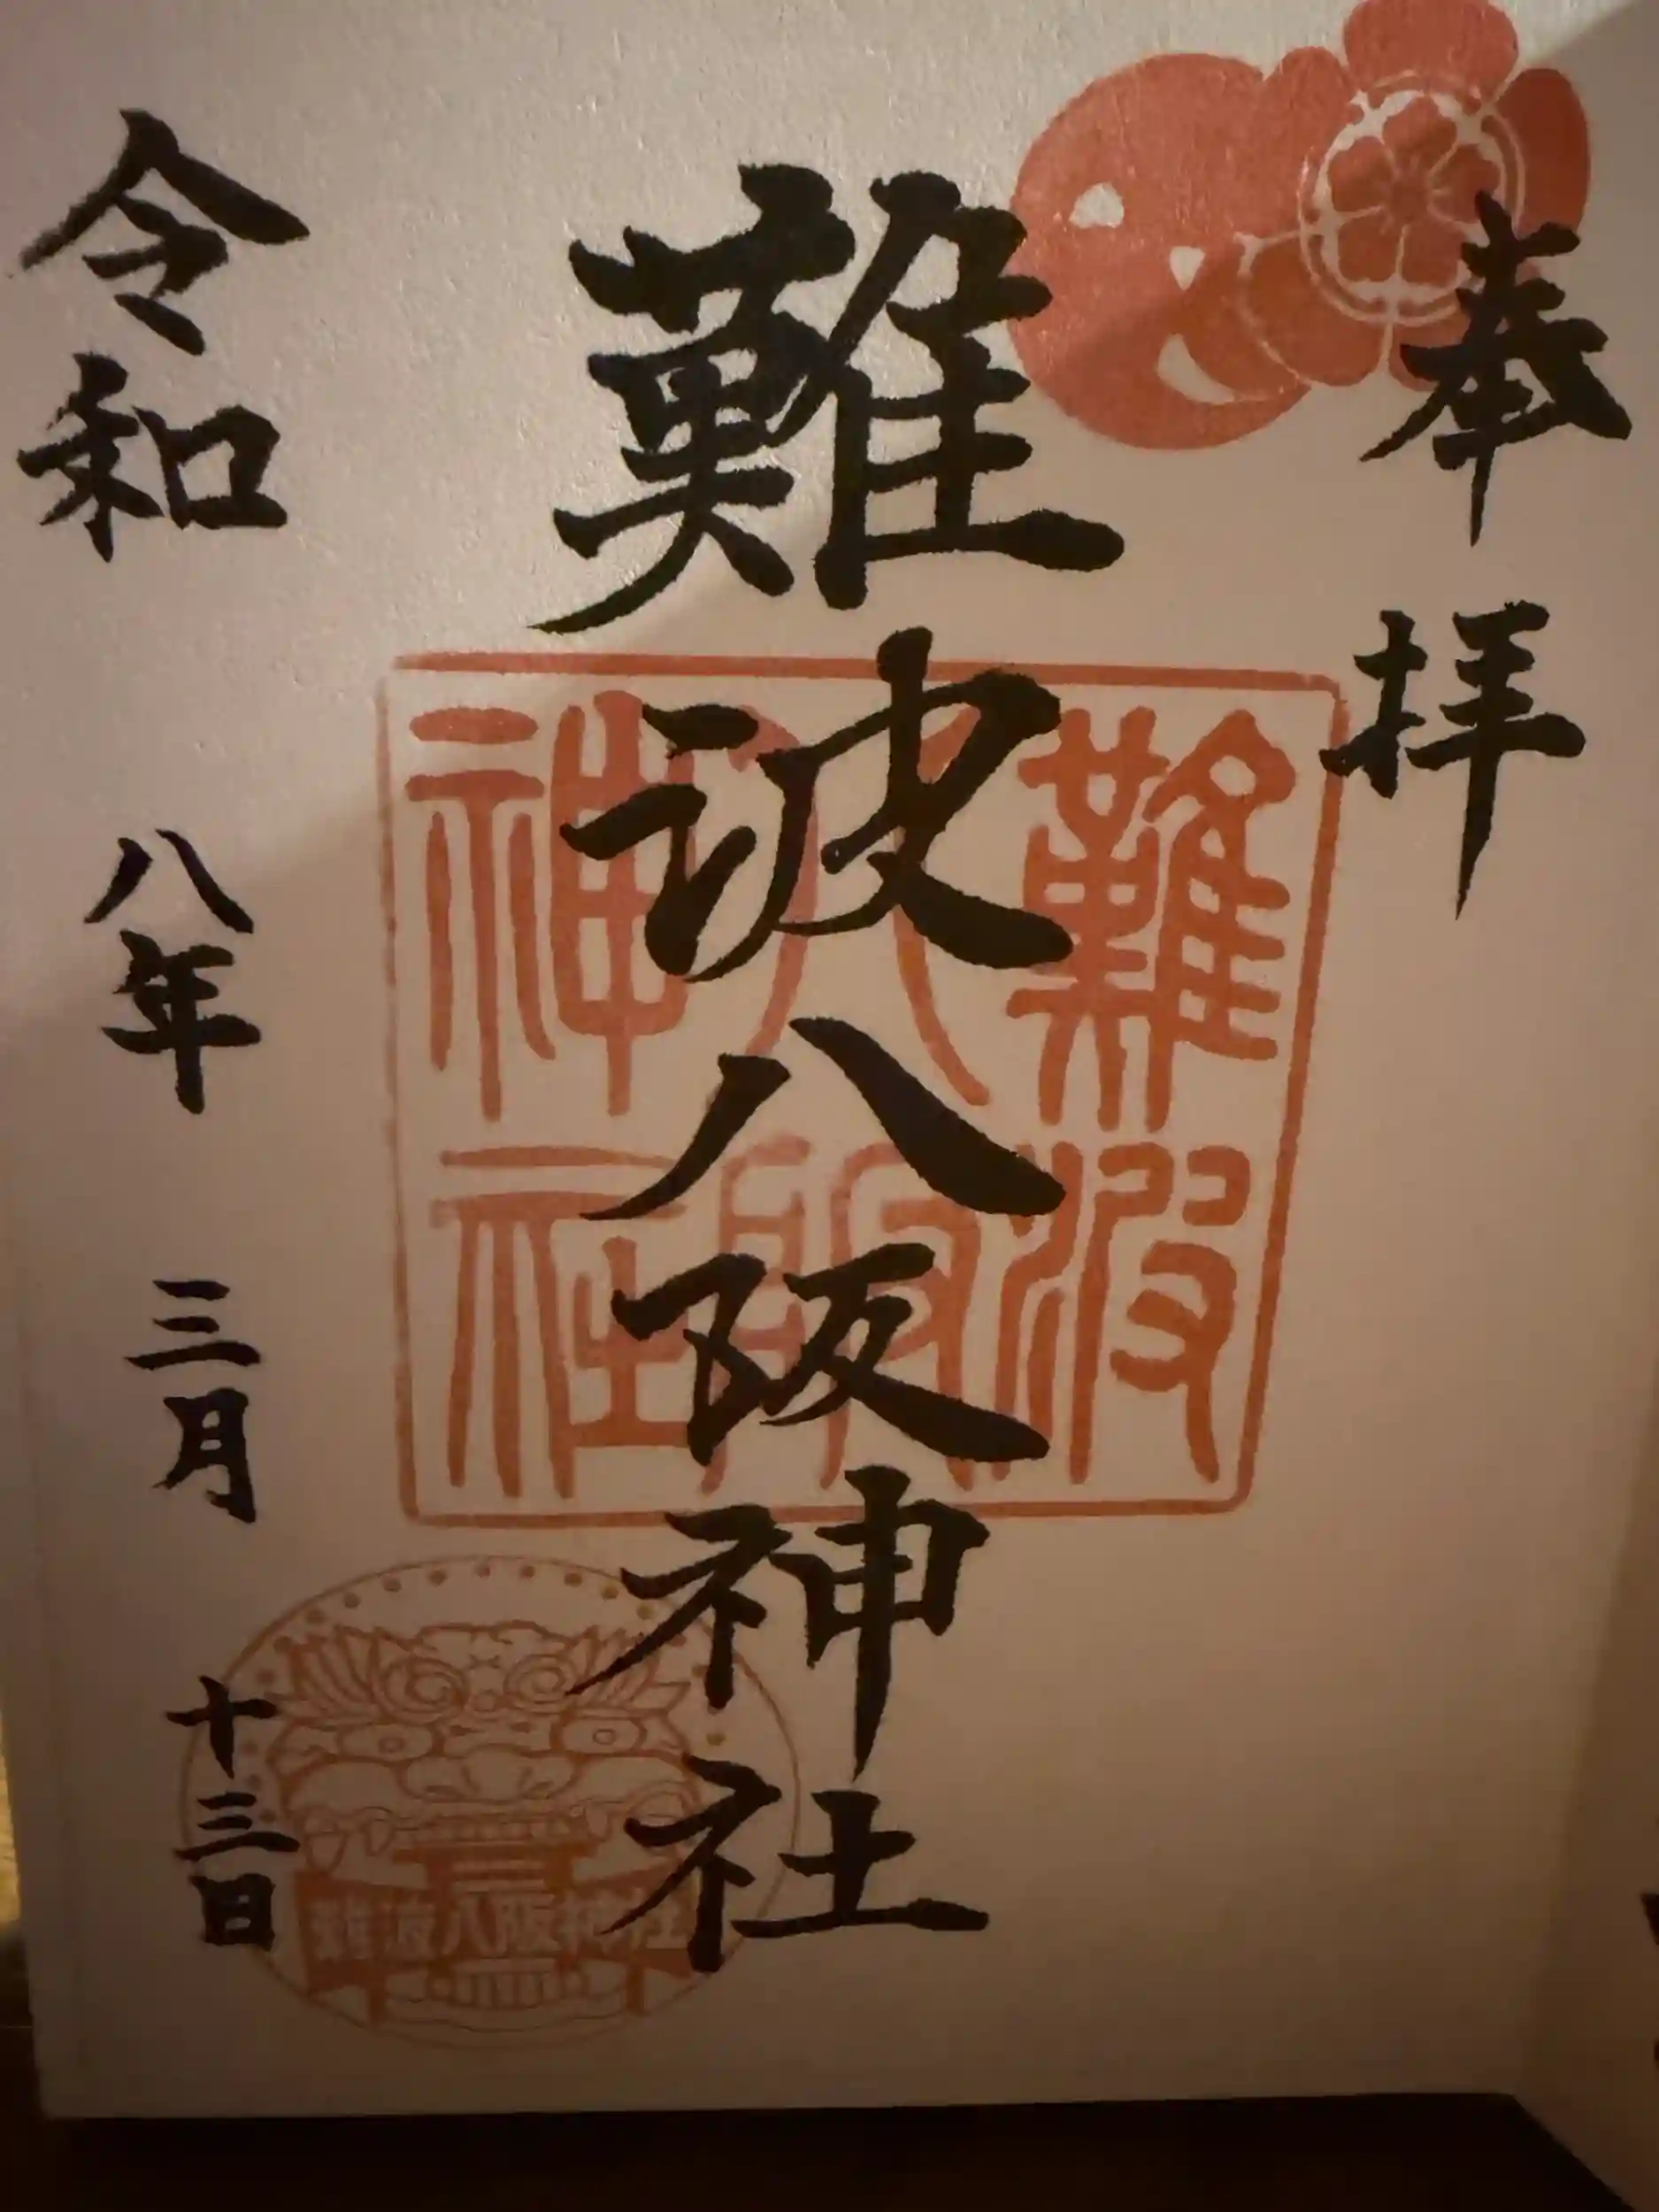 奉拝
難波八阪神社
難波
八阪
神社
令和八年三月十三日
難波八阪神社